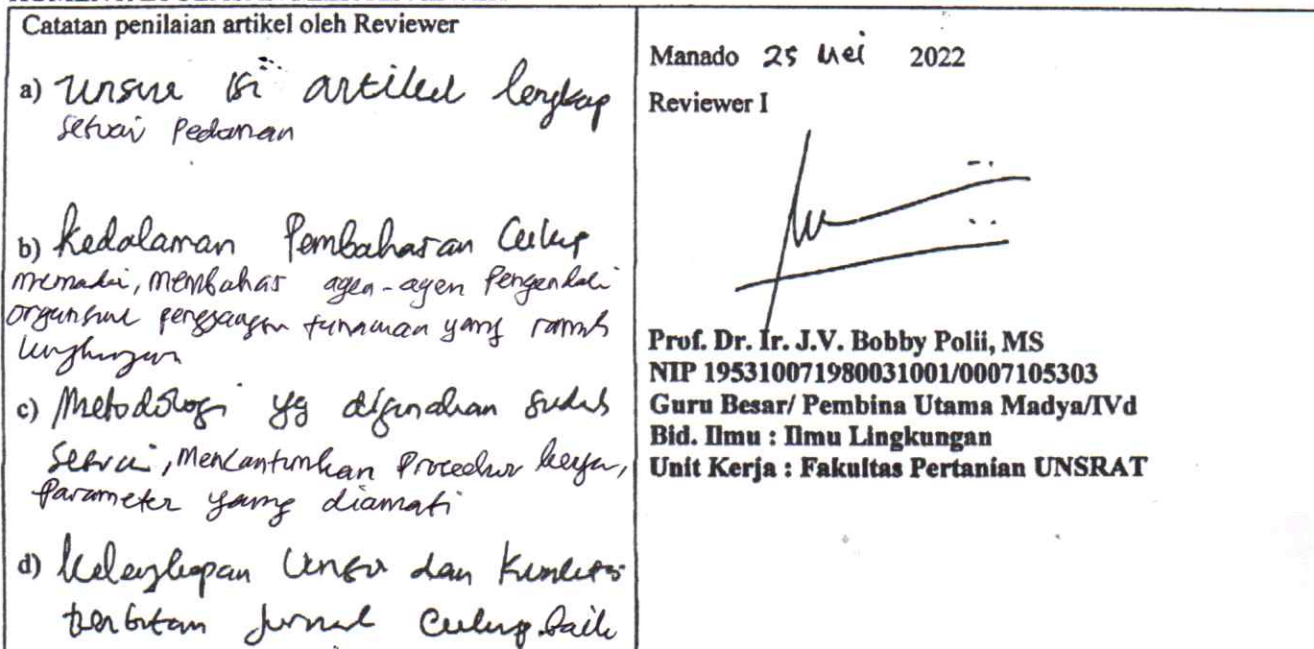 Catatan penilaian artikel oleh Reviewer
a) Unsur isi artikel lengkap
sesuai Pedoman
b) Kedalaman Pembahasan Cukup
memadai, membahas agen-agen Pengendali
organisme pengganggu tanaman yang ramah
lingkungan
c) Metodologi yg digunakan sudah
sesuai, Mencantumkan Procedur kerja,
Parameter yang diamati
d) Kelengkapan Unsur dan Kualitas
terbitan Jurnal Cukup baik
Manado 25 Mei 2022
Reviewer I
Prof. Dr. Ir. J.V. Bobby Polii, MS
NIP 195310071980031001/0007105303
Guru Besar/ Pembina Utama Madya/IVd
Bid. Ilmu : Ilmu Lingkungan
Unit Kerja : Fakultas Pertanian UNSRAT